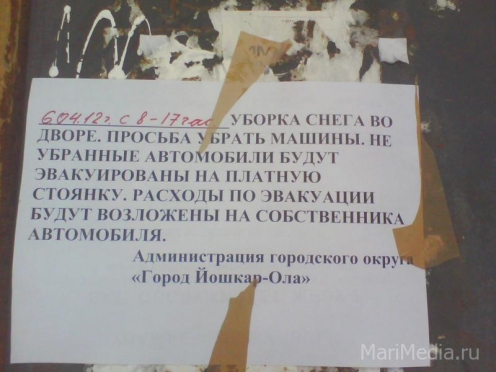 6.04.12г. с 8-17час УБОРКА СНЕГА ВО
ДВОРЕ. ПРОСЬБА УБРАТЬ МАШИНЫ. НЕ
УБРАННЫЕ АВТОМОБИЛИ БУДУТ
ЭВАКУИРОВАНЫ НА ПЛАТНУЮ
СТОЯНКУ. РАСХОДЫ ПО ЭВАКУАЦИИ
БУДУТ ВОЗЛОЖЕНЫ НА СОБСТВЕННИКА
АВТОМОБИЛЯ.
Администрация городского округа
«Город Йошкар-Ола»
MariMedia.ru